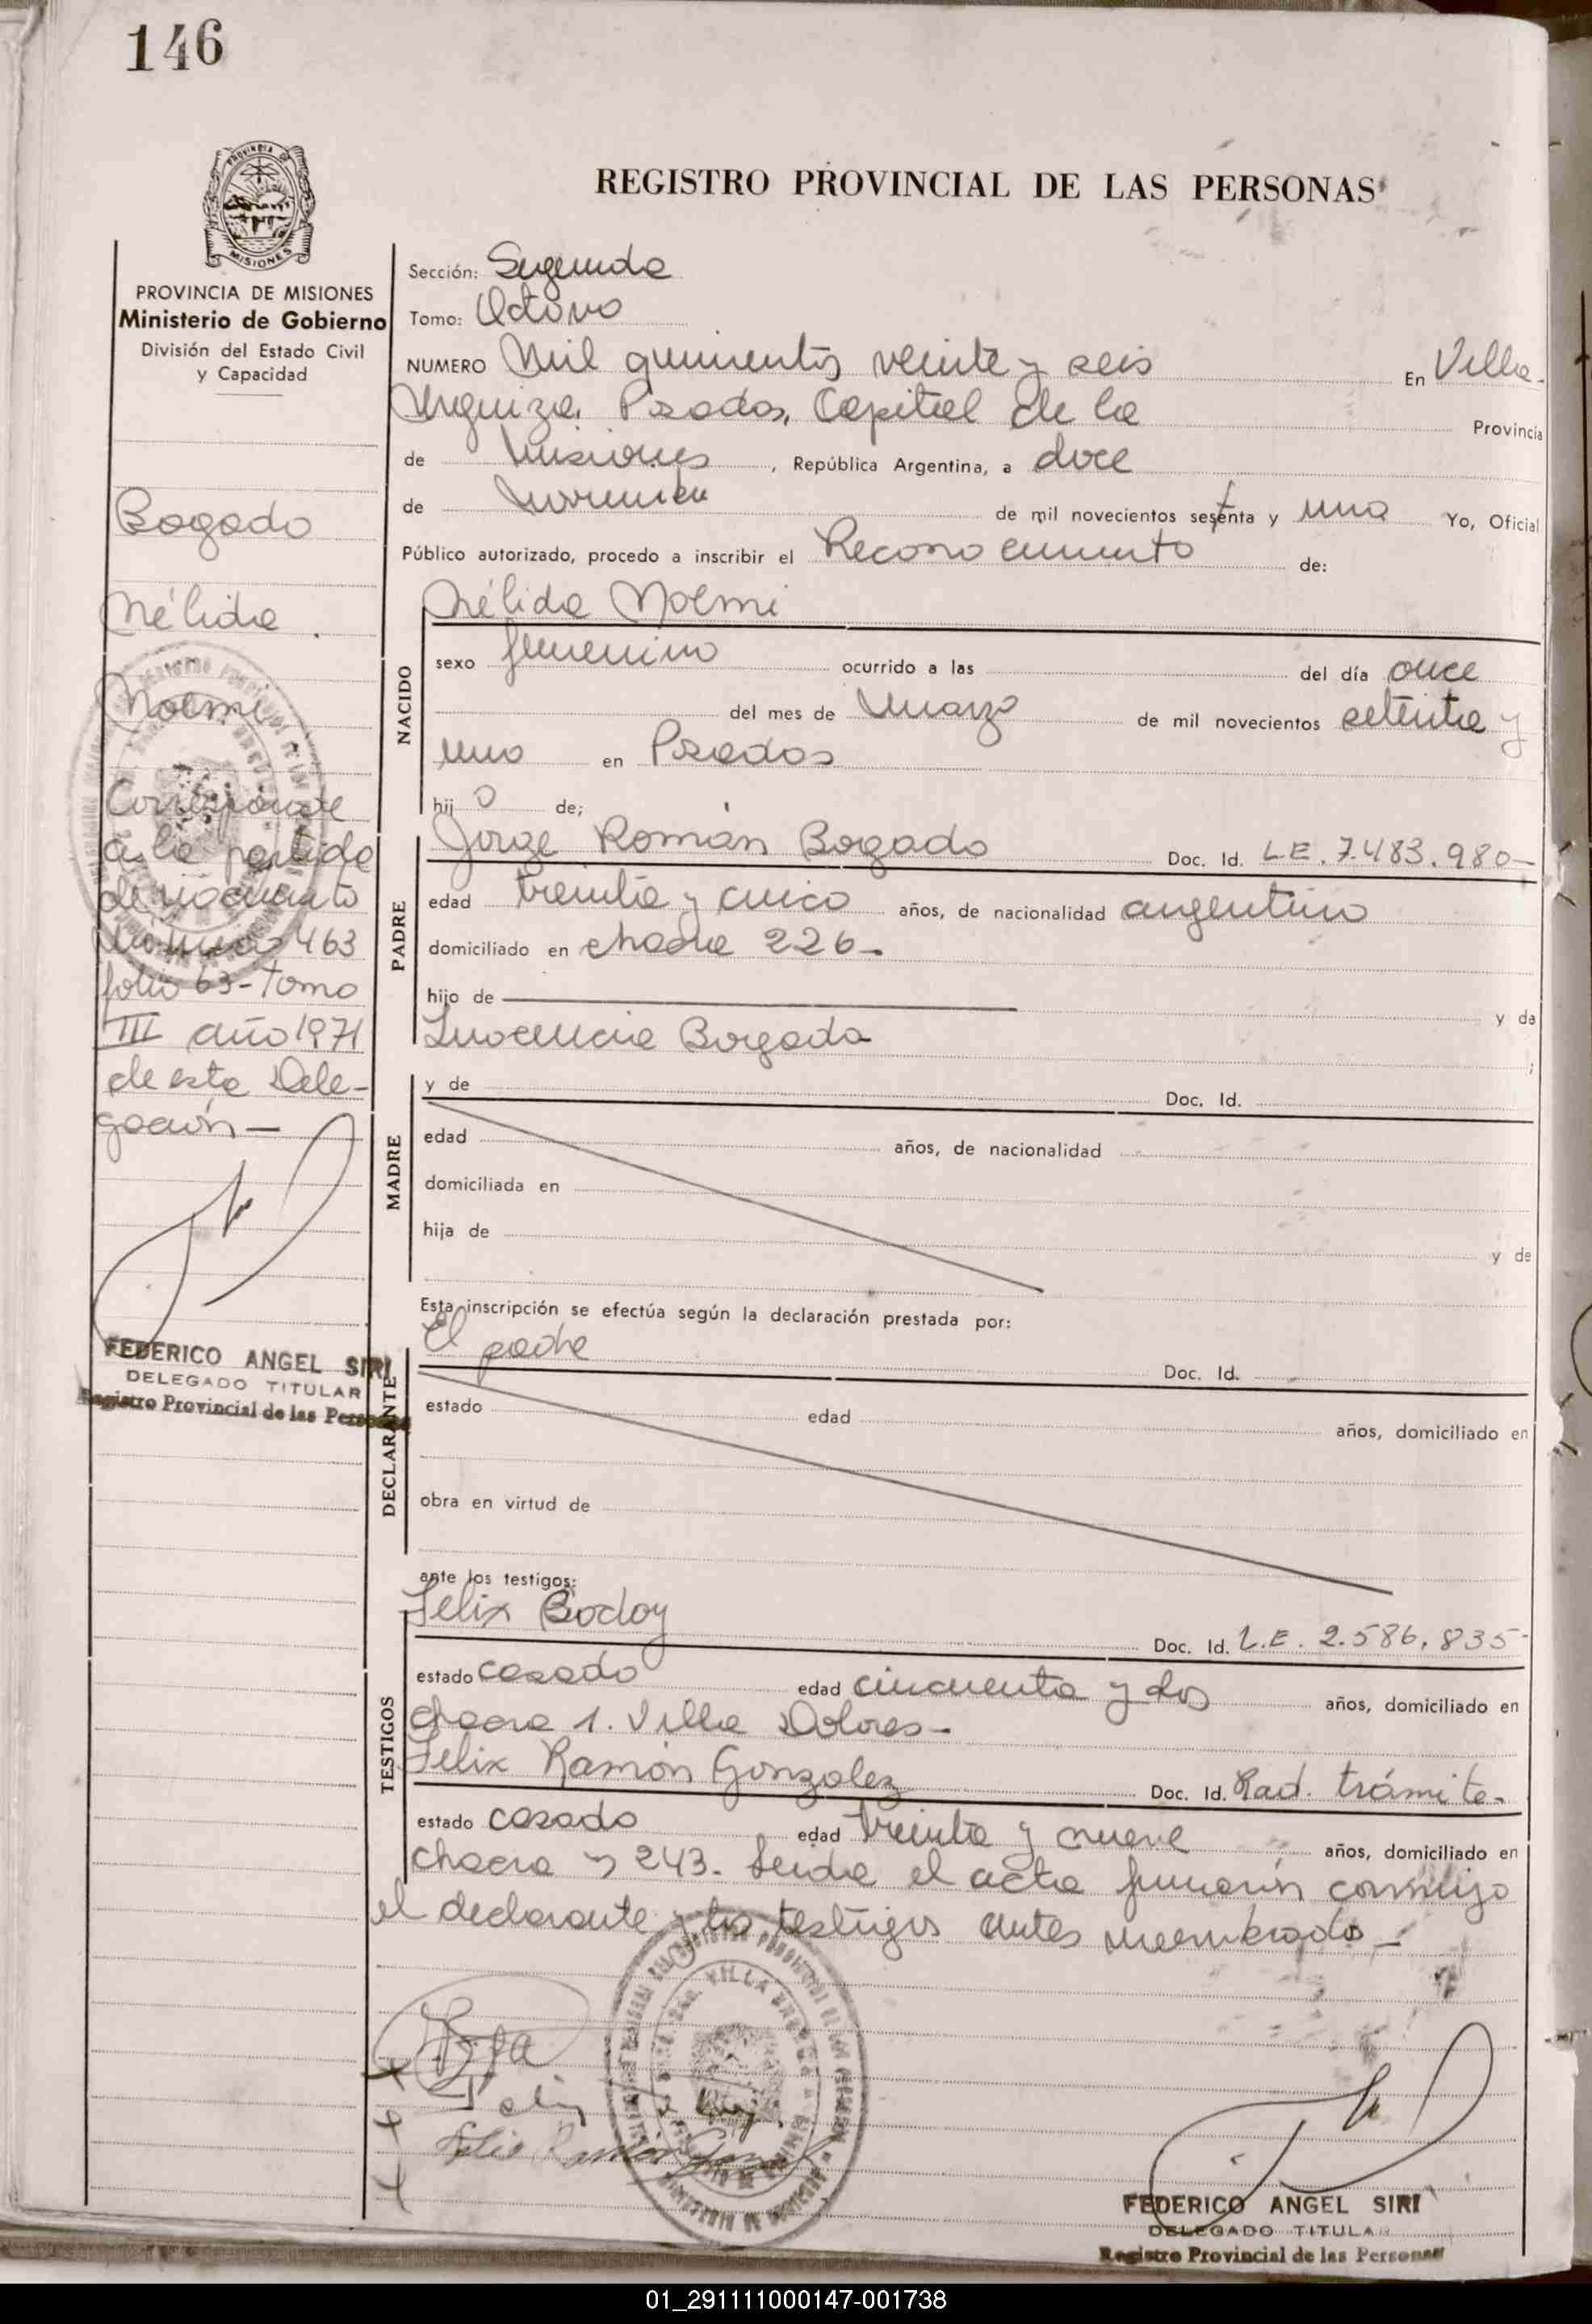 146
REGISTRO PROVINCIAL DE LAS PERSONAS
PROVINCIA DE
MISIONES
PROVINCIA DE MISIONES
Ministerio de Gobierno
División del Estado Civil
y Capacidad
Bogado
Nélida
Noemi
Corresponde
a la partida
de nacimiento
número 463
folio 63-Tomo
III año 1971
de esta Dele-
gación-
FEDERICO ANGEL SIRI
DELEGADO TITULAR
Registro Provincial de las Personas
Sección: Segunda
Tomo: Octavo
NUMERO Mil quinientos veinte y seis En Villa
Urquiza, Posadas, Capital de la Provincia
de Misiones, República Argentina, a doce
de Noviembre de mil novecientos setenta y uno Yo, Oficial
Público autorizado, procedo a inscribir el Reconocimiento de:
NACIDO
Nélida Noemi
sexo femenino ocurrido a las del día once
del mes de Marzo de mil novecientos setenta y
uno en Posadas
hij o de;
PADRE
Jorge Román Bogado Doc. Id. L.E. 7.483.980-
edad treinta y cinco años, de nacionalidad argentino
domiciliado en chacra 226-
hijo de y de
Inocencia Bogado ;
MADRE
y de Doc. Id.
edad años, de nacionalidad
domiciliada en
hija de y de
Esta inscripción se efectúa según la declaración prestada por:
DECLARANTE
El padre Doc. Id.
estado edad años, domiciliado en
obra en virtud de
ante los testigos:
TESTIGOS
Felix Godoy Doc. Id. L.E. 2.586.835-
estado casado edad cincuenta y dos años, domiciliado en
chacra 1. Villa Dolores-
Felix Ramón Gonzalez Doc. Id. Rad. trámite-
estado casado edad treinta y nueve años, domiciliado en
chacra 243. Leida el acta firmarón conmigo
el declarante y los testigos antes nombrados-
Felix
Felix Ramón
FEDERICO ANGEL SIRI
DELEGADO TITULAR
Registro Provincial de las Personas
01_291111000147-001738